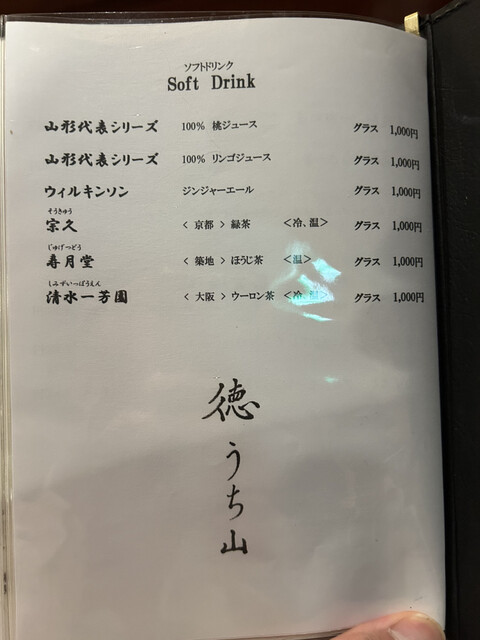 ソフトドリンク
Soft Drink
山形代表シリーズ 100% 桃ジュース グラス 1,000円
山形代表シリーズ 100% リンゴジュース グラス 1,000円
ウィルキンソン ジンジャーエール グラス 1,000円
そうきゅう
宗久 < 京都 > 緑茶 <冷、温> グラス 1,000円
じゅげつどう
寿月堂 < 築地 > ほうじ茶 <温> グラス 1,000円
しみずいっぽうえん
清水一芳園 < 大阪 > ウーロン茶 <冷、温> グラス 1,000円
徳うち山